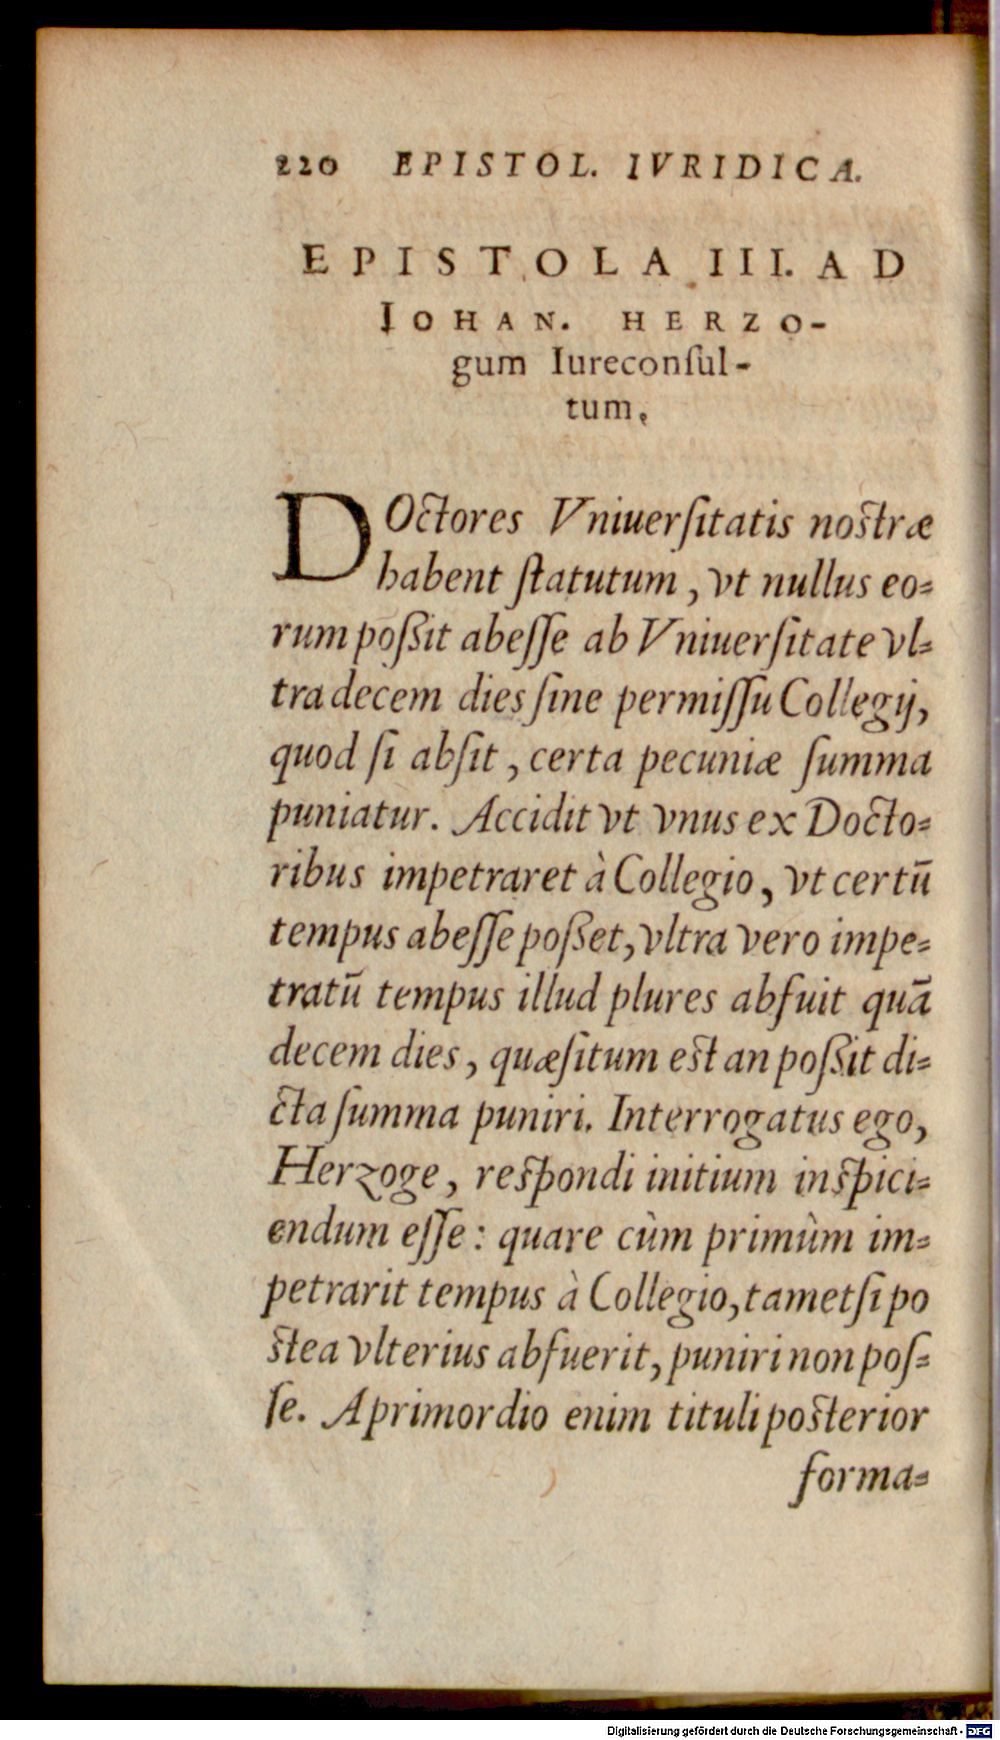 220 EPISTOL. IVRIDICA.
EPISTOLA III. AD
IOHAN. HERZO-
gum Iureconſul-
tum.
DOctores Vniuerſitatis noſtræ
habent ſtatutum, vt nullus eo-
rum poßit abeſſe ab Vniuerſitate vl-
tra decem dies ſine permiſſu Collegij,
quod ſi abſit, certa pecuniæ ſumma
puniatur. Accidit vt vnus ex Docto-
ribus impetraret à Collegio, vt certũ
tempus abeſſe poßet, vltra vero impe-
tratũ tempus illud plures abfuit quã
decem dies, quæſitum eſt an poßit di-
cta ſumma puniri. Interrogatus ego,
Herzoge, reſpondi initium inſpici-
endum eſſe: quare cùm primùm im-
petrarit tempus à Collegio, tametſi po
ſtea vlterius abfuerit, puniri non poſ-
ſe. A primordio enim tituli poſterior
forma-
Digitalisierung gefördert durch die Deutsche Forschungsgemeinschaft - DFG